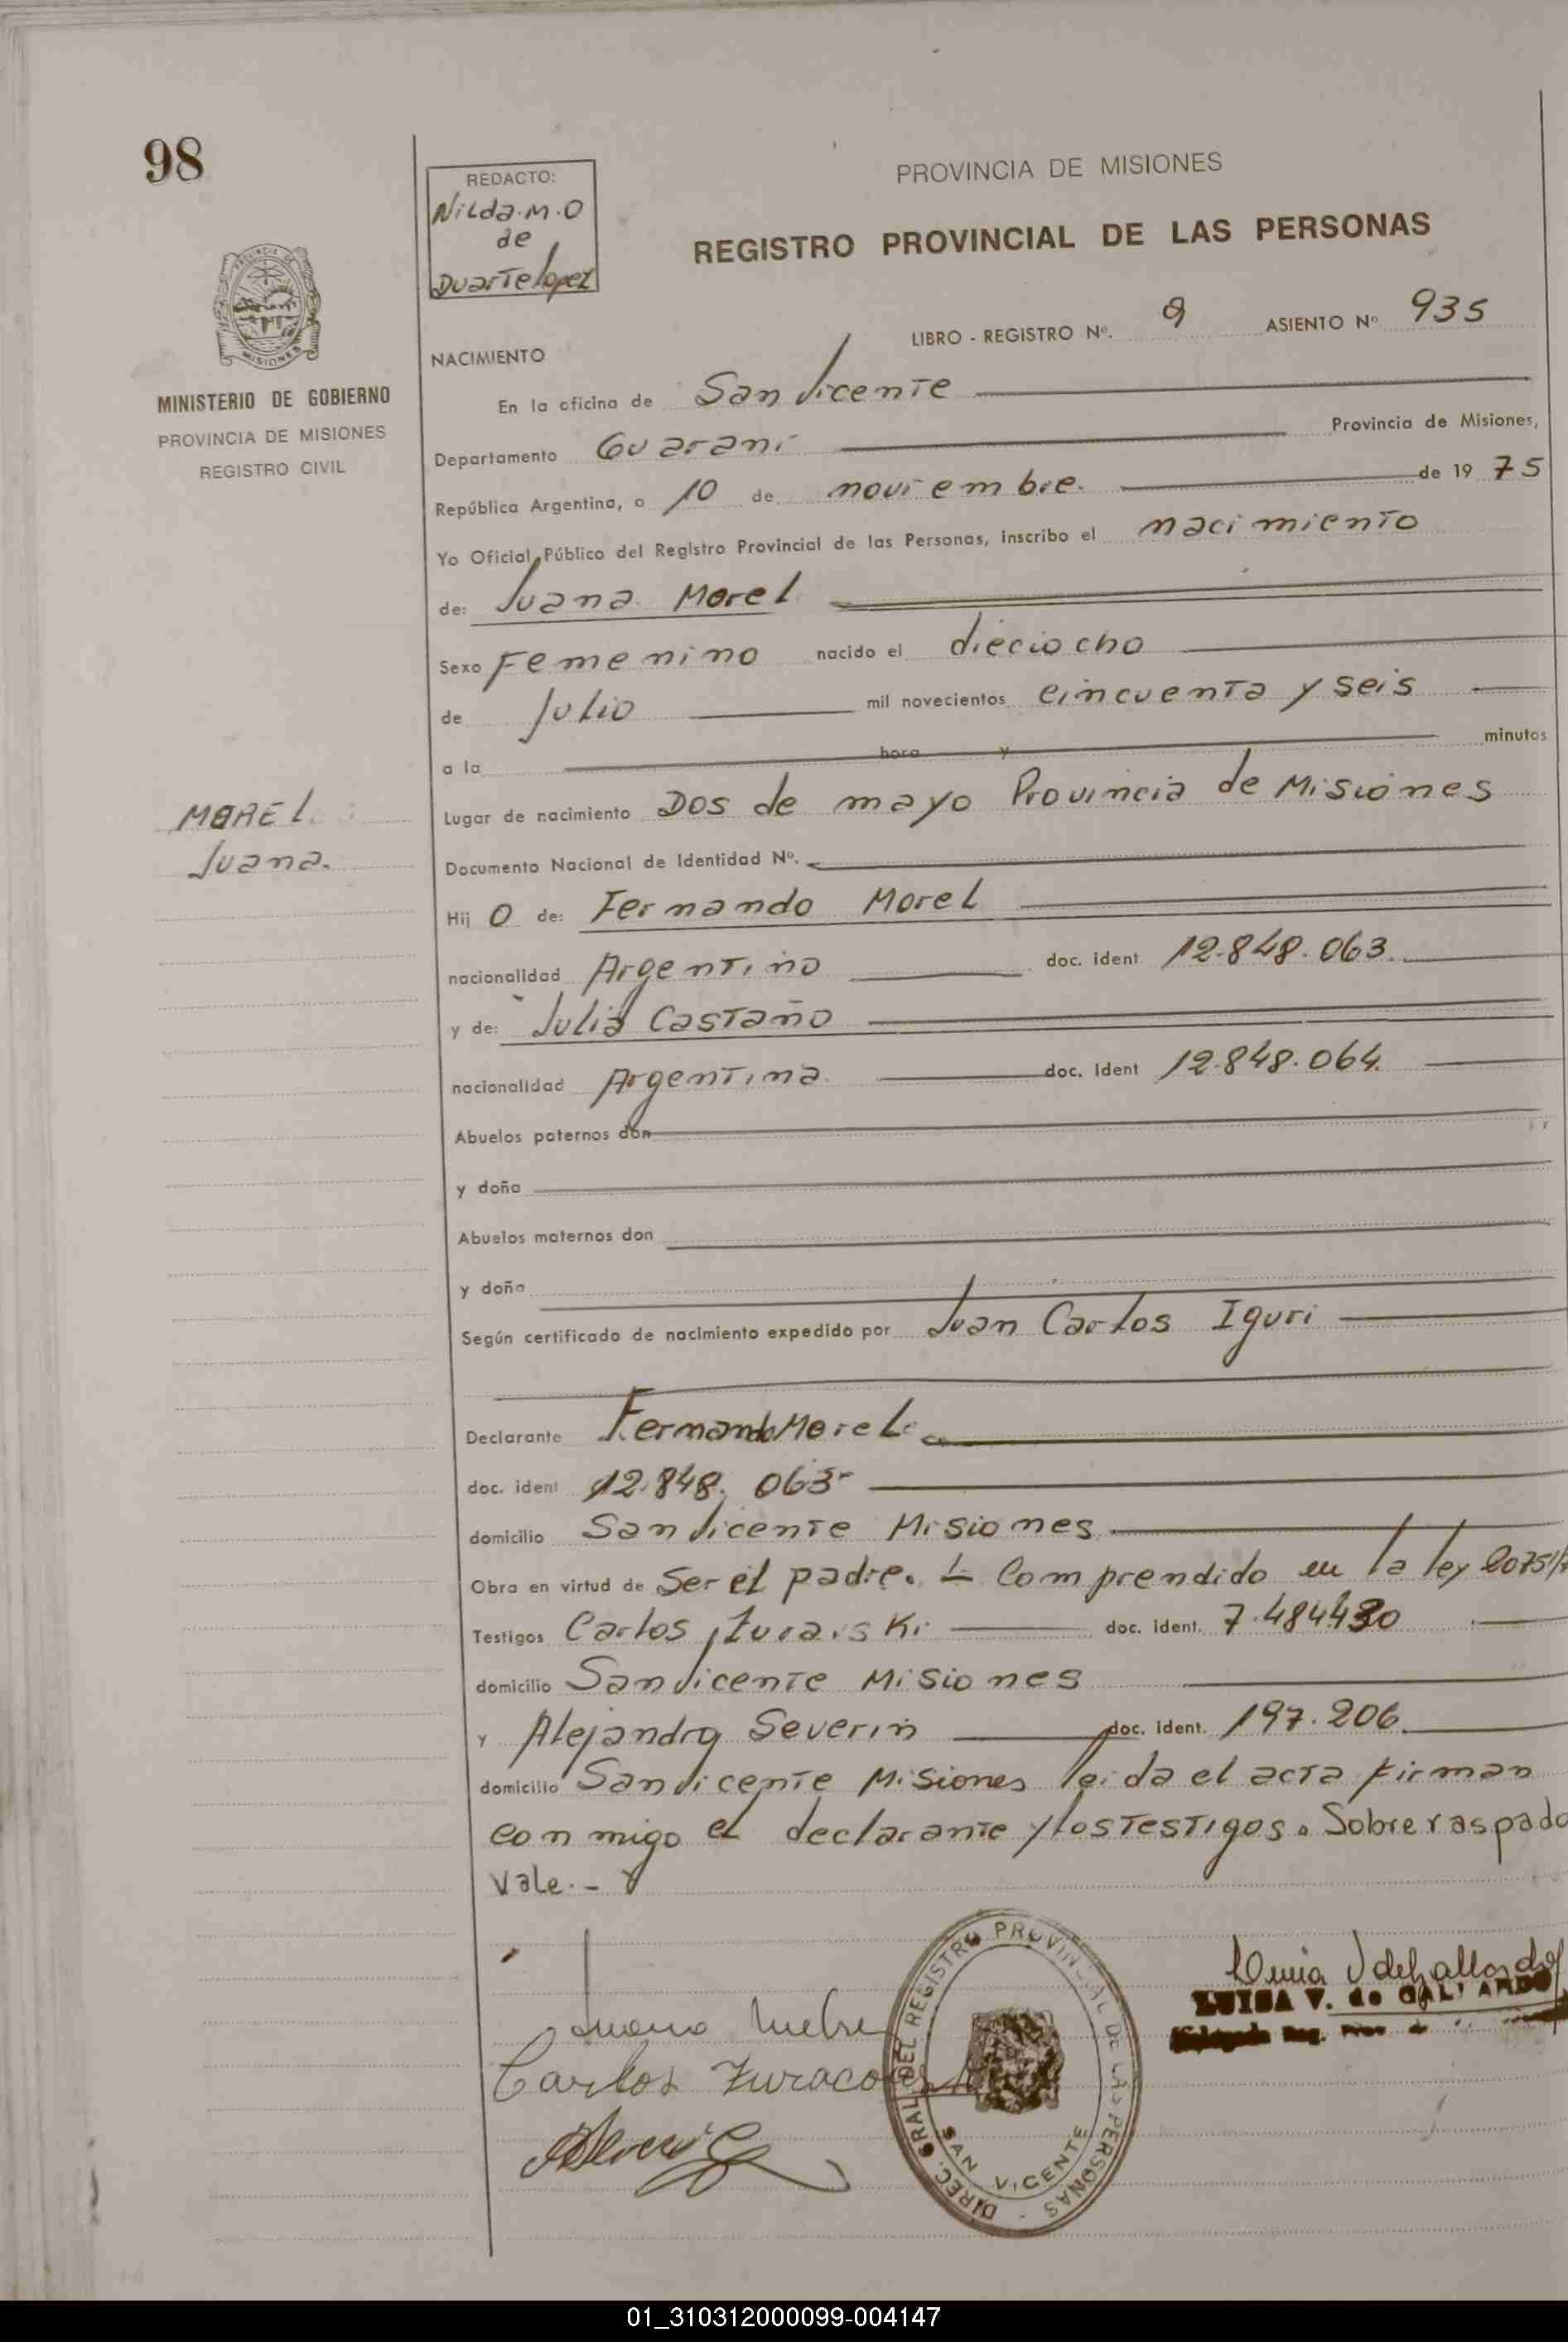 98
REDACTO:
Nilda.M.O
de
Duarte lopez
PROVINCIA DE MISIONES
REGISTRO PROVINCIAL DE LAS PERSONAS
MISIONES
MINISTERIO DE GOBIERNO
PROVINCIA DE MISIONES
REGISTRO CIVIL
LIBRO - REGISTRO Nº. 9 ASIENTO Nº 935
NACIMIENTO
En la oficina de San Vicente
Departamento Guaraní Provincia de Misiones,
República Argentina, a 10 de noviembre. de 19 75
Yo Oficial Público del Registro Provincial de las Personas, inscribo el nacimiento
de: Juana Morel
Sexo Femenino nacido el dieciocho
de Julio mil novecientos cincuenta y seis
a la hora y minutos
MOREL
Juana.
Lugar de nacimiento Dos de mayo Provincia de Misiones
Documento Nacional de Identidad Nº.
Hij O de: Fernando Morel
nacionalidad Argentino doc. ident 12.848.063.
y de: Julia Castaño
nacionalidad Argentina. doc. ident 12.848.064.
Abuelos paternos don
y doña
Abuelos maternos don
y doña
Según certificado de nacimiento expedido por Juan Carlos Iguri
Declarante Fernando Morel
doc. ident 12.848.063
domicilio San Vicente Misiones
Obra en virtud de ser el padre. Comprendido en la ley
Testigos Carlos doc. ident. 7.484.430
domicilio San Vicente Misiones
y Alejandro Severin doc. ident. 197.206
domicilio San Vicente Misiones leida el acta firman
conmigo el declarante y los testigos. Sobre raspado
Vale.-
DIREC. GRAL DEL REGISTRO PROVINCIAL DE LAS PERSONAS
SAN VICENTE
LUISA V. de GALLARDO
Carlos
01_310312000099-004147